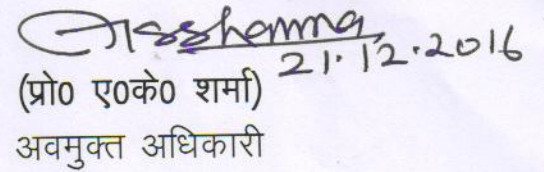 21.12.2016
(प्रो0 ए0के0 शर्मा)
अवमुक्त अधिकारी